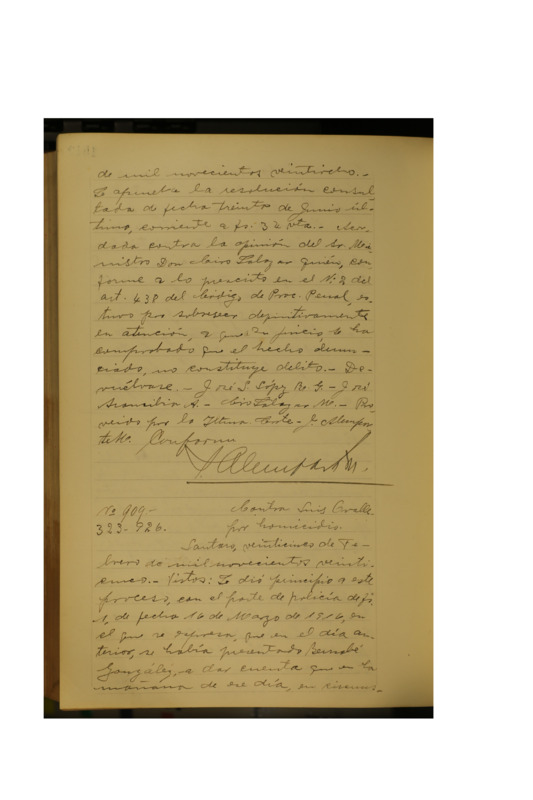 de mil novecientos veintiocho.-
Se aprueba la resolución consul
tada de fecha treinta de Junio úl-
timo, corriente a fs. 32 vta.- Acor-
dada contra la opinión del Sr. Mi-
nistro Don Clairo Salazar quién, con-
forme a lo prescrito en el N.º 2 del
art. 438 del Código de Proc. Penal, es-
tuvo por sobreseer definitivamente
en atención, a que en juicio, se ha
comprobado que el hecho denun-
ciado, no constituye delito.- De-
vuélvase.- José S. López R. G.- José
A.- Salazar M.- Pro
veído por la Iltma Corte- J. Alempar
te M. Conforme
J. Alemparte M.
Nº 909-
323-926.
Contra Luis Ovalle.
por homicidio.
Santiago, veintinueve de Fe-
brero de mil novecientos veinti-
nueve.- Vistos: Se dió principio a este
proceso, con el parte de policía de fs.
1, de fecha 16 de Marzo de 1916, en
el que se expresa, que en el día an-
terior, se había presentado Bernabé
González, a dar cuenta que en la
mañana de ese día, en circuns-